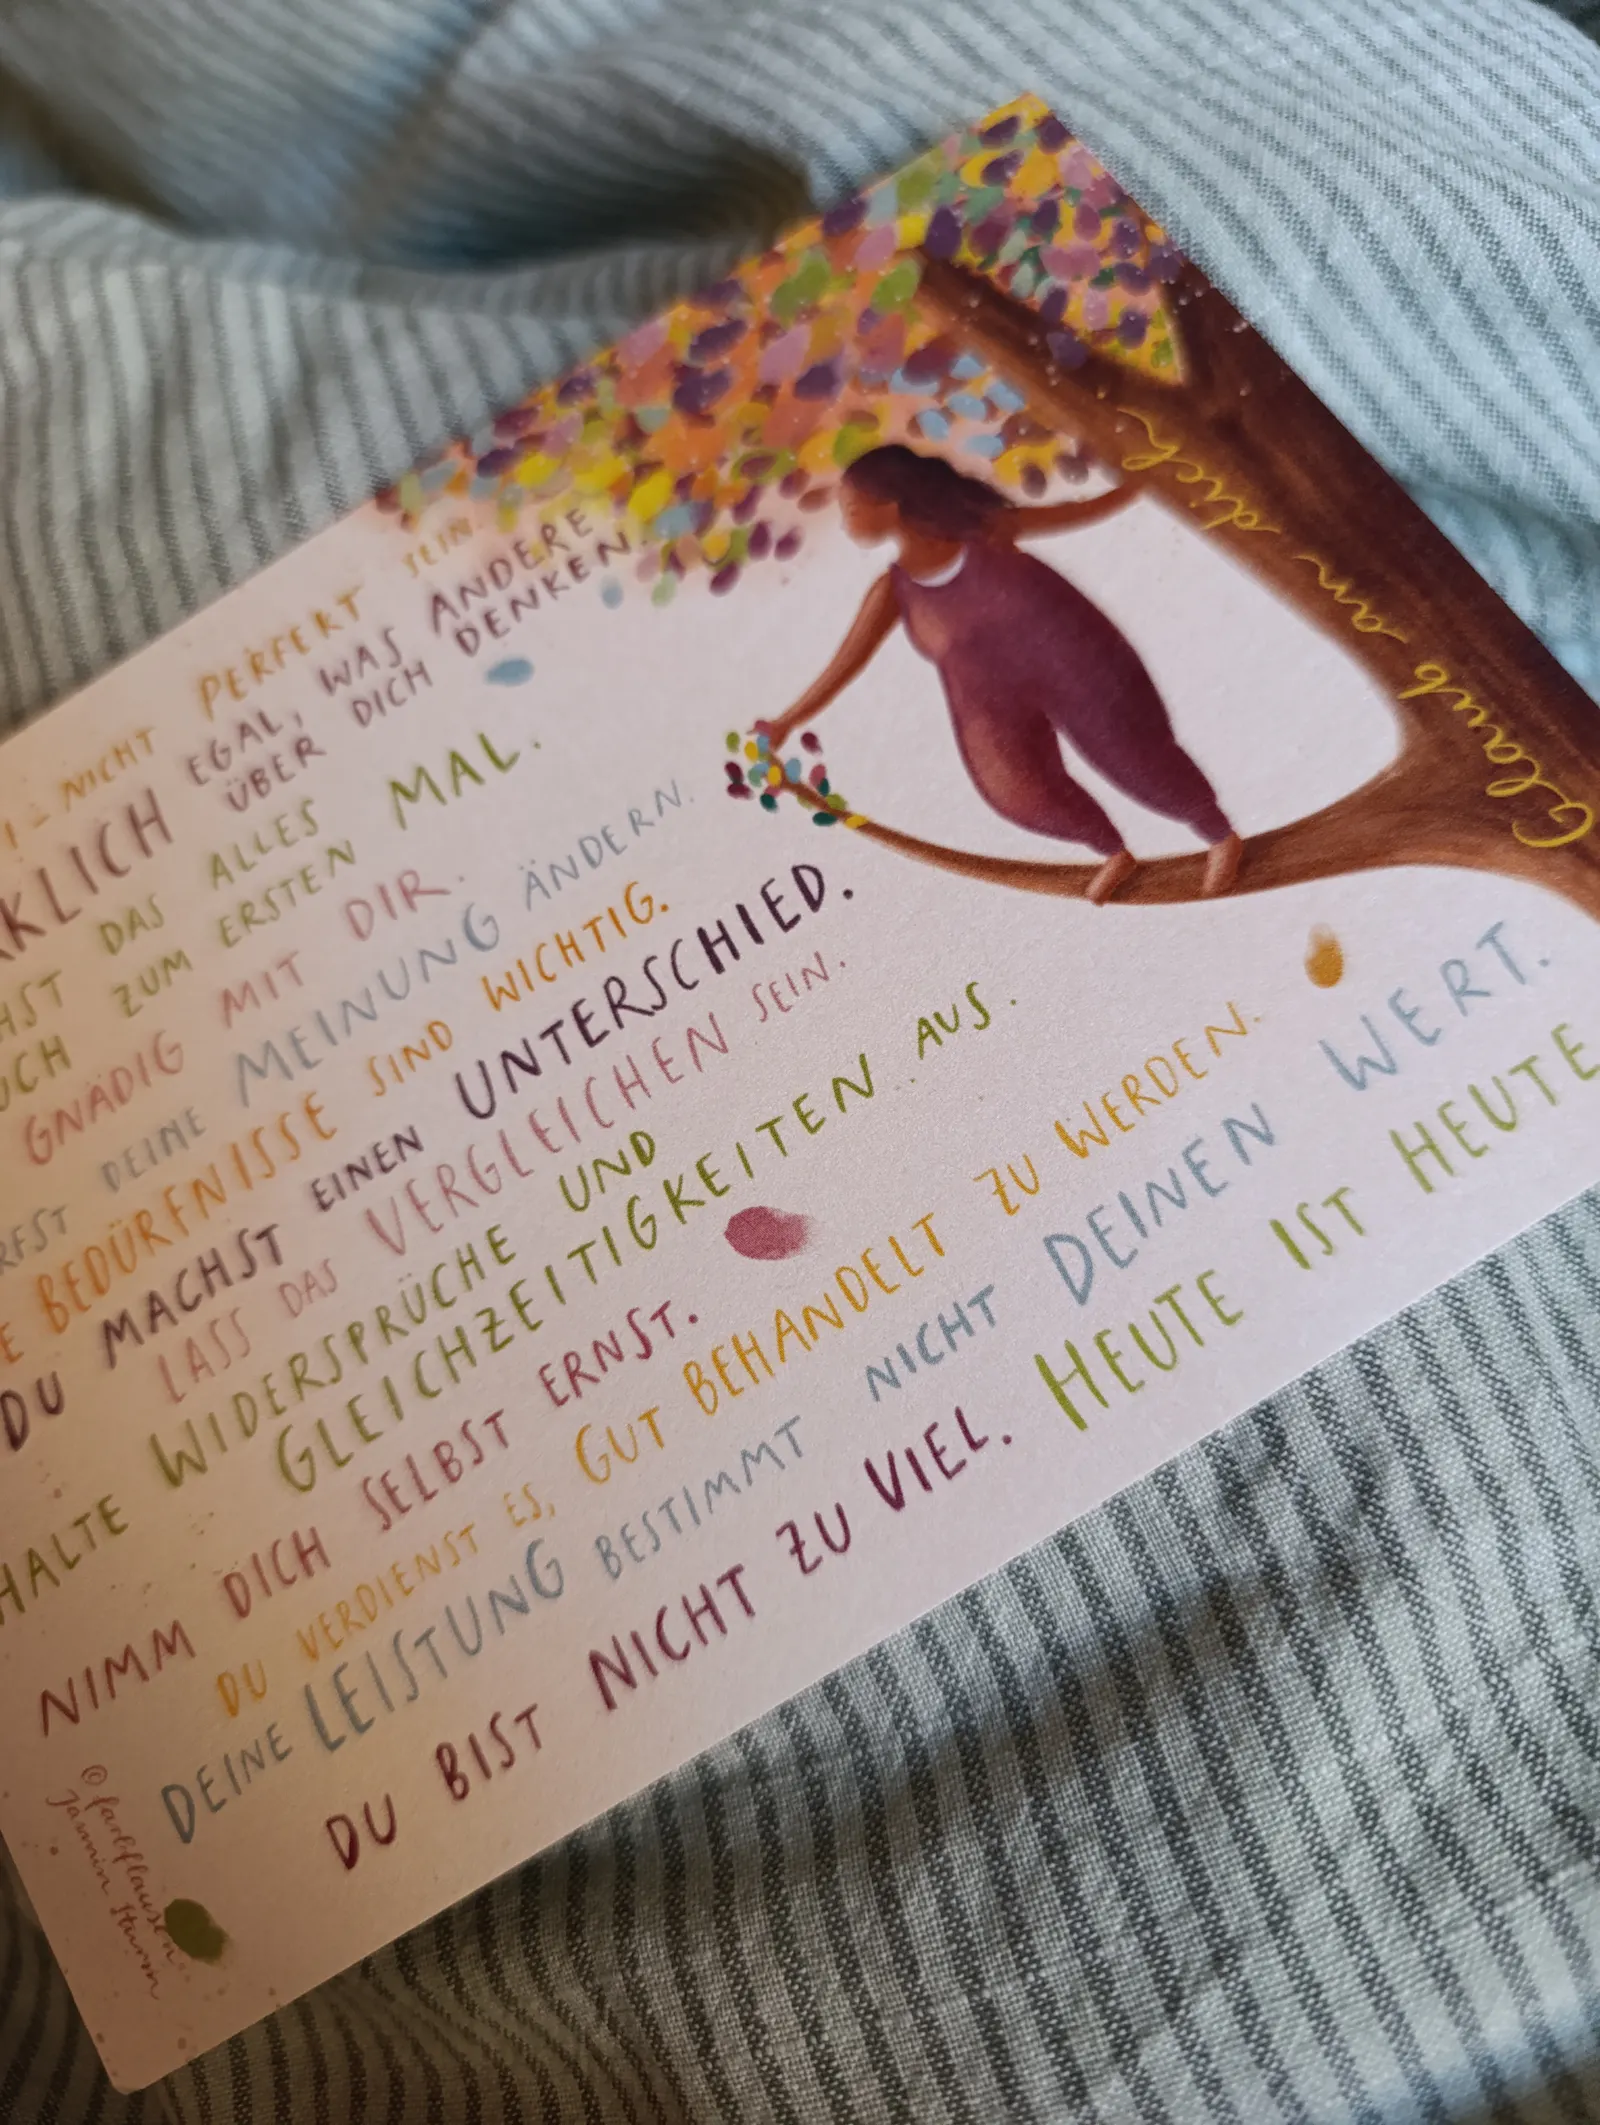 NICHT PERFEKT SEIN
EGAL, WAS ANDERE
ÜBER DICH DENKEN.
DAS ALLES
ZUM ERSTEN MAL.
GNÄDIG MIT DIR.
DEINE MEINUNG ÄNDERN.
BEDÜRFNISSE SIND WICHTIG.
DU MACHST EINEN UNTERSCHIED.
LASS DAS VERGLEICHEN SEIN.
HALTE WIDERSPRÜCHE UND
GLEICHZEITIGKEITEN AUS.
NIMM DICH SELBST ERNST.
DU VERDIENST ES, GUT BEHANDELT ZU WERDEN.
DEINE LEISTUNG BESTIMMT NICHT DEINEN WERT.
DU BIST NICHT ZU VIEL. HEUTE IST HEUTE
Glaub an dich
© farbflausen
Jasmin Hamm